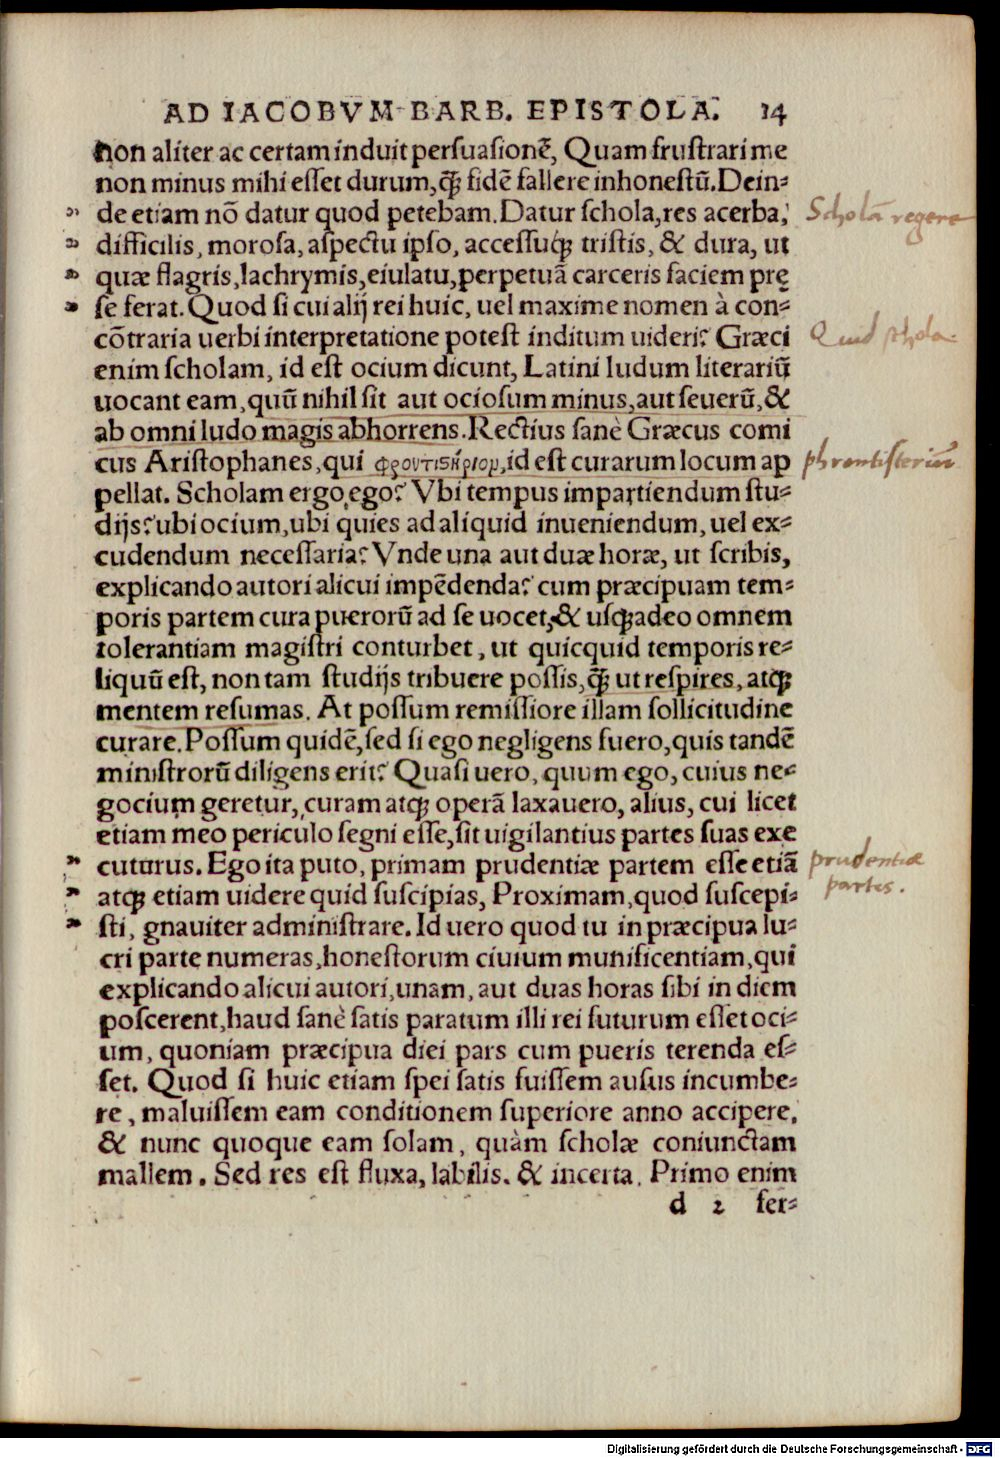 AD IACOBVM BARB. EPISTOLA. 14
non aliter ac certam induit persuasionẽ, Quam frustrari me
non minus mihi esset durum, q̃ʒ fidẽ fallere inhonestũ. Dein-
de etiam nõ datur quod petebam. Datur schola, res acerba,
Scholã regere
difficilis, morosa, aspectu ipso, accessuqʒ tristis, & dura, ut
quæ flagris, lachrymis, eiulatu, perpetuã carceris faciem prę
se ferat. Quod si cui alij rei huic, uel maxime nomen à con-
cõtraria uerbi interpretatione potest inditum uideri? Græci
Quid schola.
enim scholam, id est ocium dicunt, Latini ludum literariũ
uocant eam, quũ nihil sit aut ociosum minus, aut seuerũ, &
ab omni ludo magis abhorrens. Rectius sanè Græcus comi
cus Aristophanes, qui φροντιςήριον, id est curarum locum ap
phrontisteriũ
pellat. Scholam ergo, ego? Vbi tempus impartiendum stu-
dijs? ubi ocium, ubi quies ad aliquid inueniendum, uel ex-
cudendum necessaria? Vnde una aut duæ horæ, ut scribis,
explicando autori alicui impẽdenda? cum præcipuam tem-
poris partem cura puerorũ ad se uocet, & usqʒadeo omnem
tolerantiam magistri conturbet, ut quicquid temporis re-
liquũ est, non tam studijs tribuere possis, q̃ʒ ut respires, atqʒ
mentem resumas. At possum remissiore illam sollicitudine
curare. Possum quidẽ, sed si ego negligens fuero, quis tandẽ
ministrorũ diligens erit? Quasi uero, quum ego, cuius ne-
gocium geretur, curam atqʒ operã laxauero, alius, cui licet
etiam meo periculo segni esse, sit uigilantius partes suas exe
cuturus. Ego ita puto, primam prudentiæ partem esse etiã
prudentiæ
atqʒ etiam uidere quid suscipias, Proximam, quod suscepi-
partes.
sti, gnauiter administrare. Id uero quod tu in præcipua lu-
cri parte numeras, honestorum ciuium munificentiam, qui
explicando alicui autori, unam, aut duas horas sibi in diem
poscerent, haud sanè satis paratum illi rei futurum esset oci-
um, quoniam præcipua diei pars cum pueris terenda es-
set. Quod si huic etiam spei satis fuissem ausus incumbe-
re, maluissem eam conditionem superiore anno accipere,
& nunc quoque eam solam, quàm scholæ coniunctam
mallem. Sed res est fluxa, labilis. & incerta. Primo enim
d 2 fer-
Digitalisierung gefördert durch die Deutsche Forschungsgemeinschaft - DFG